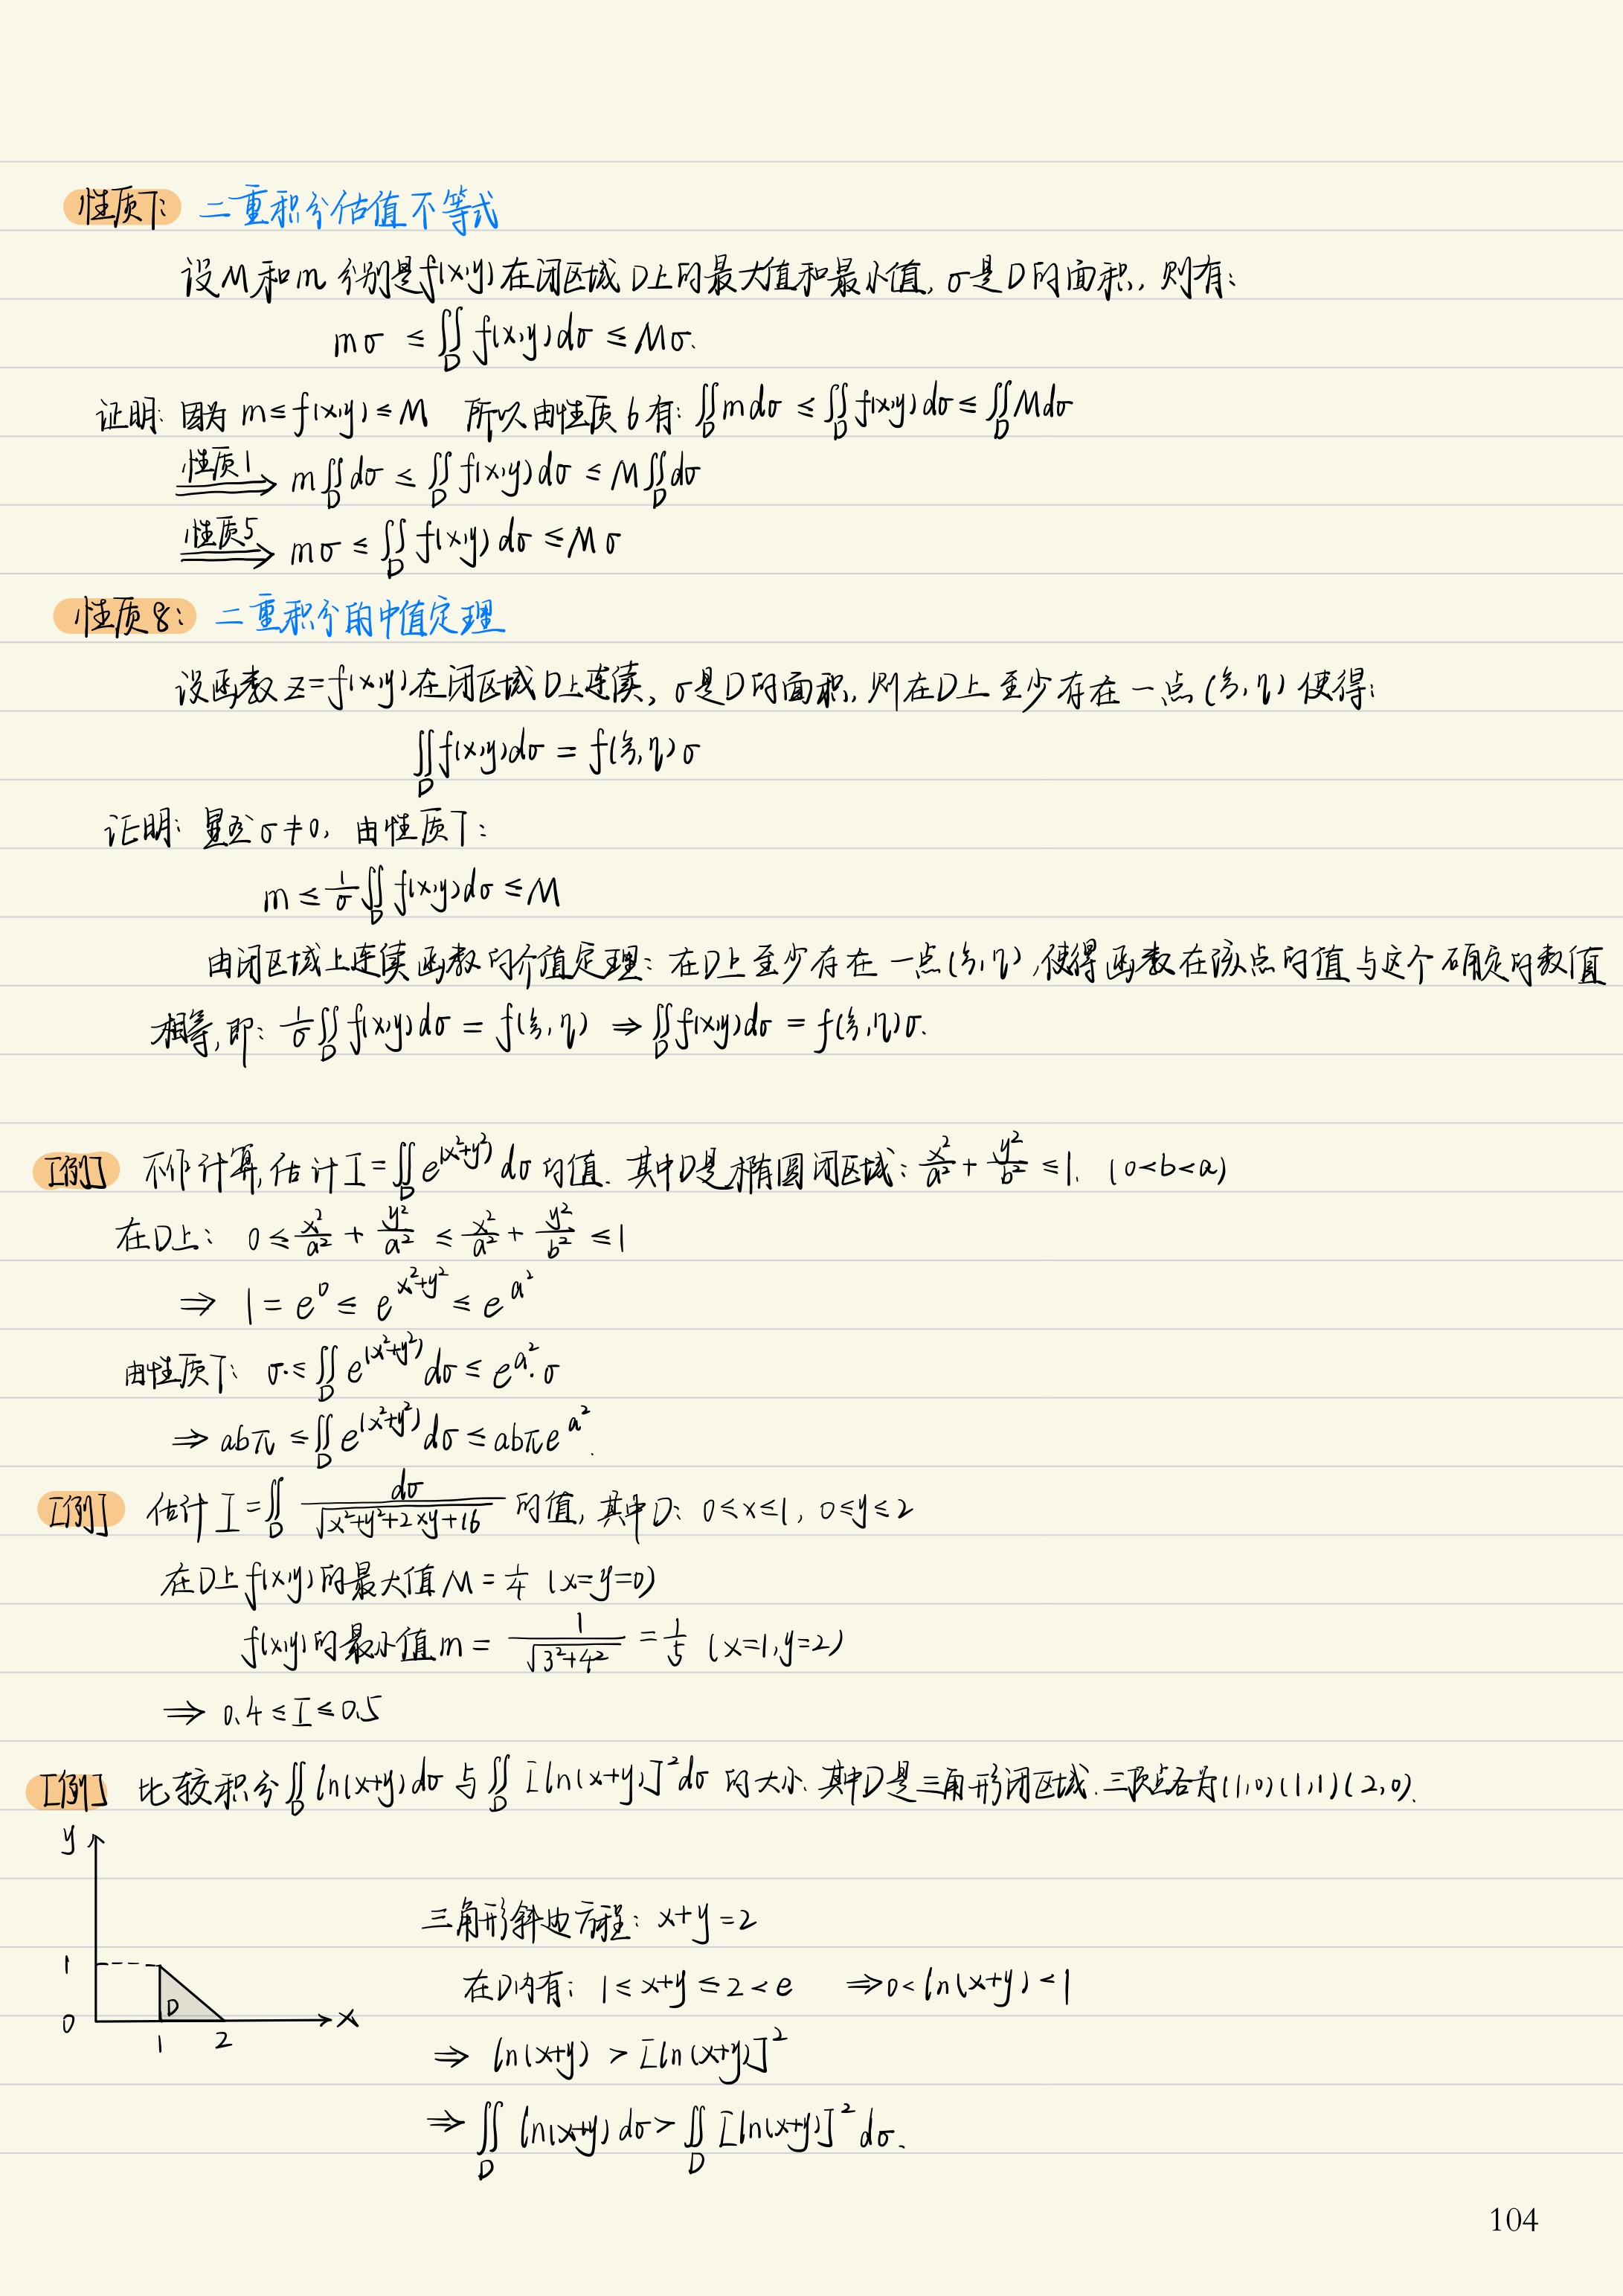 性质7: 二重积分估值不等式
设M和m分别是f(x,y)在闭区域D上的最大值和最小值, σ是D的面积, 则有:
mσ ≤ ∬_D f(x,y)dσ ≤ Mσ.
证明: 因为 m≤f(x,y)≤M 所以由性质6有: ∬_D mdσ ≤ ∬_D f(x,y)dσ ≤ ∬_D Mdσ
性质1 ⟹ m∬_D dσ ≤ ∬_D f(x,y)dσ ≤ M∬_D dσ
性质5 ⟹ mσ ≤ ∬_D f(x,y)dσ ≤ Mσ
性质8: 二重积分的中值定理
设函数z=f(x,y)在闭区域D上连续, σ是D的面积, 则在D上至少存在一点(ξ,η)使得:
∬_D f(x,y)dσ = f(ξ,η)σ
证明: 显然σ≠0, 由性质7:
m ≤ 1/σ ∬_D f(x,y)dσ ≤ M
由闭区域上连续函数的介值定理: 在D上至少存在一点(ξ,η), 使得函数在该点的值与这个确定的数值
相等, 即: 1/σ ∬_D f(x,y)dσ = f(ξ,η) ⇒ ∬_D f(x,y)dσ = f(ξ,η)σ.
[例] 不作计算, 估计I=∬_D e^(x²+y²) dσ的值. 其中D是椭圆闭区域: x²/a² + y²/b² ≤1. (0<b<a)
在D上: 0 ≤ x²/a² + y²/a² ≤ x²/a² + y²/b² ≤ 1
⇒ 1 = e^0 ≤ e^(x²+y²) ≤ e^(a²)
由性质7: σ ≤ ∬_D e^(x²+y²) dσ ≤ e^(a²)·σ
⇒ abπ ≤ ∬_D e^(x²+y²) dσ ≤ abπe^(a²).
[例] 估计I=∬_D dσ/√(x²+y²+2xy+16) 的值, 其中D: 0≤x≤1, 0≤y≤2
在D上f(x,y)的最大值M = 1/4 (x=y=0)
f(x,y)的最小值m = 1/√(3²+4²) = 1/5 (x=1,y=2)
⇒ 0.4 ≤ I ≤ 0.5
[例] 比较积分∬_D ln(x+y)dσ与∬_D [ln(x+y)]²dσ的大小. 其中D是三角形闭区域. 三顶点各为(1,0)(1,1)(2,0).
y
三角形斜边方程: x+y=2
1
在D内有: 1≤x+y≤2<e ⇒0<ln(x+y)<1
D
0 x
1 2
⇒ ln(x+y) > [ln(x+y)]²
⇒ ∬_D ln(x+y)dσ > ∬_D [ln(x+y)]²dσ.
104